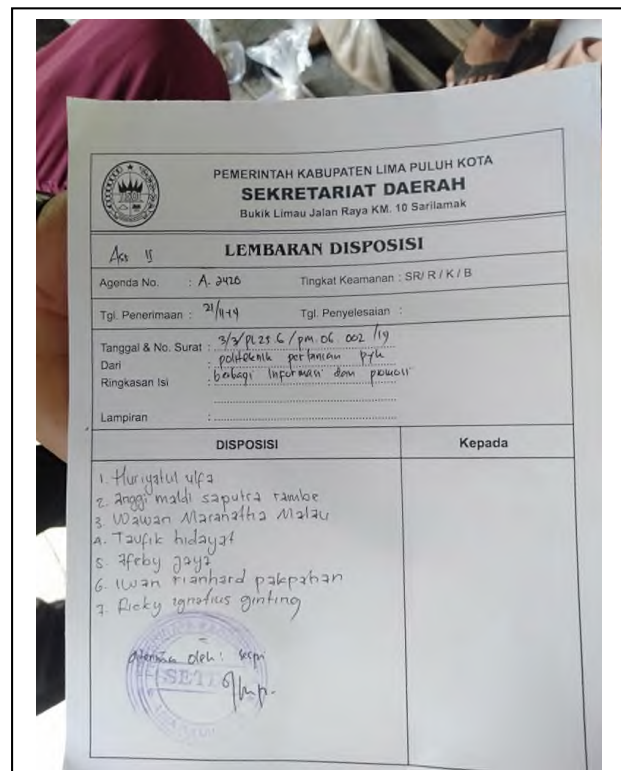 PEMERINTAH KABUPATEN LIMA PULUH KOTA
SEKRETARIAT DAERAH
Bukik Limau Jalan Raya KM. 10 Sarilamak
LEMBARAN DISPOSISI
Agenda No. : A. 2420 Tingkat Keamanan : SR/ R / K / B
Tgl. Penerimaan : 21/11-19 Tgl. Penyelesaian :
Tanggal & No. Surat : 3/3/PL25.6/pm.06.002/19
Dari : politeknik pertanian pyh
Ringkasan Isi : berbagi Informasi dan promosi
Lampiran :
DISPOSISI Kepada
1. Huriyatul ulfa
2. anggi maldi saputra rambe
3. Wawan Maranatha Malau
4. Taufik hidayat
5. afeby jaya
6. Iwan rianhard pakpahan
7. Ricky ignatius ginting
diterima oleh :